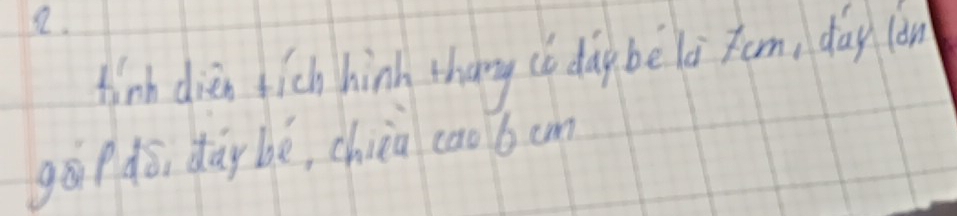 2.
tính diện tích hình thang có đáy bé là 7cm, đáy lớn
gấp đôi đáy bé, chiều cao 6 cm